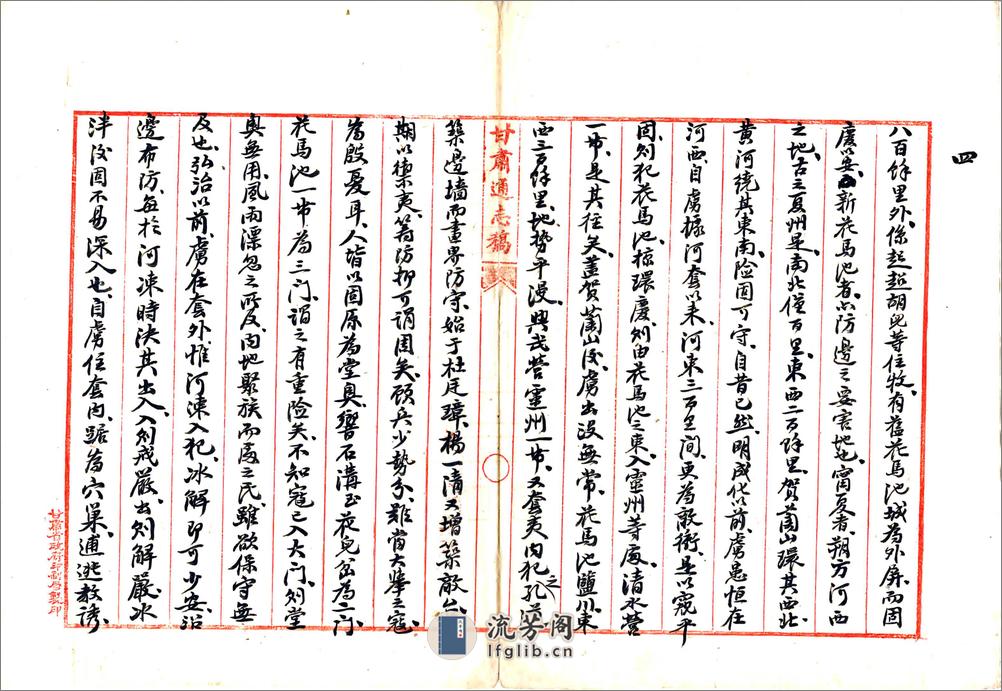 四
八百餘里外係超超胡兒等住牧有舊花馬池城為外屏而固
慶以安新花馬池者亦防邊之要害地也甯夏者朔方河西
之地古之夏州是南北僅百里東西二百餘里賀蘭山環其西北
黃河繞其東南險固可守自昔已然明成化以前虜患恒在
河西自虜據河套以來河東三百里間更為敵衝是以寇平
固則犯花馬池掠環慶則由花馬池之東入靈州等處清水營
一帶是其徑矣蓋賀蘭山後虜出沒無常花馬池鹽川東
西三百餘里地勢平漫興武營靈州一帶又套夷內犯之孔道
甘肅通志稿
築邊墻而畫界防守始于杜廷璋楊一清又增築敵台
期以禦夷籌防抑可謂固矣顧兵少勢分難當大舉之寇
為殷憂耳人皆以固原為堂奧響石溝至夜兒岔為二門
花馬池一帶為三門謂之有重險矣不知寇已入大門則堂
奧無用風雨漂忽之所及內地聚族而處之民雖欲保守無
及也弘治以前虜在套外惟河凍入犯冰解即可少安沿
邊布防每於河凍時決其出入入則戒嚴出則解嚴冰
泮後固不易深入也自虜住套內踞為穴巢逋逃教誘
甘肅省政府印刷局製印
流芳阁
lfglib.cn